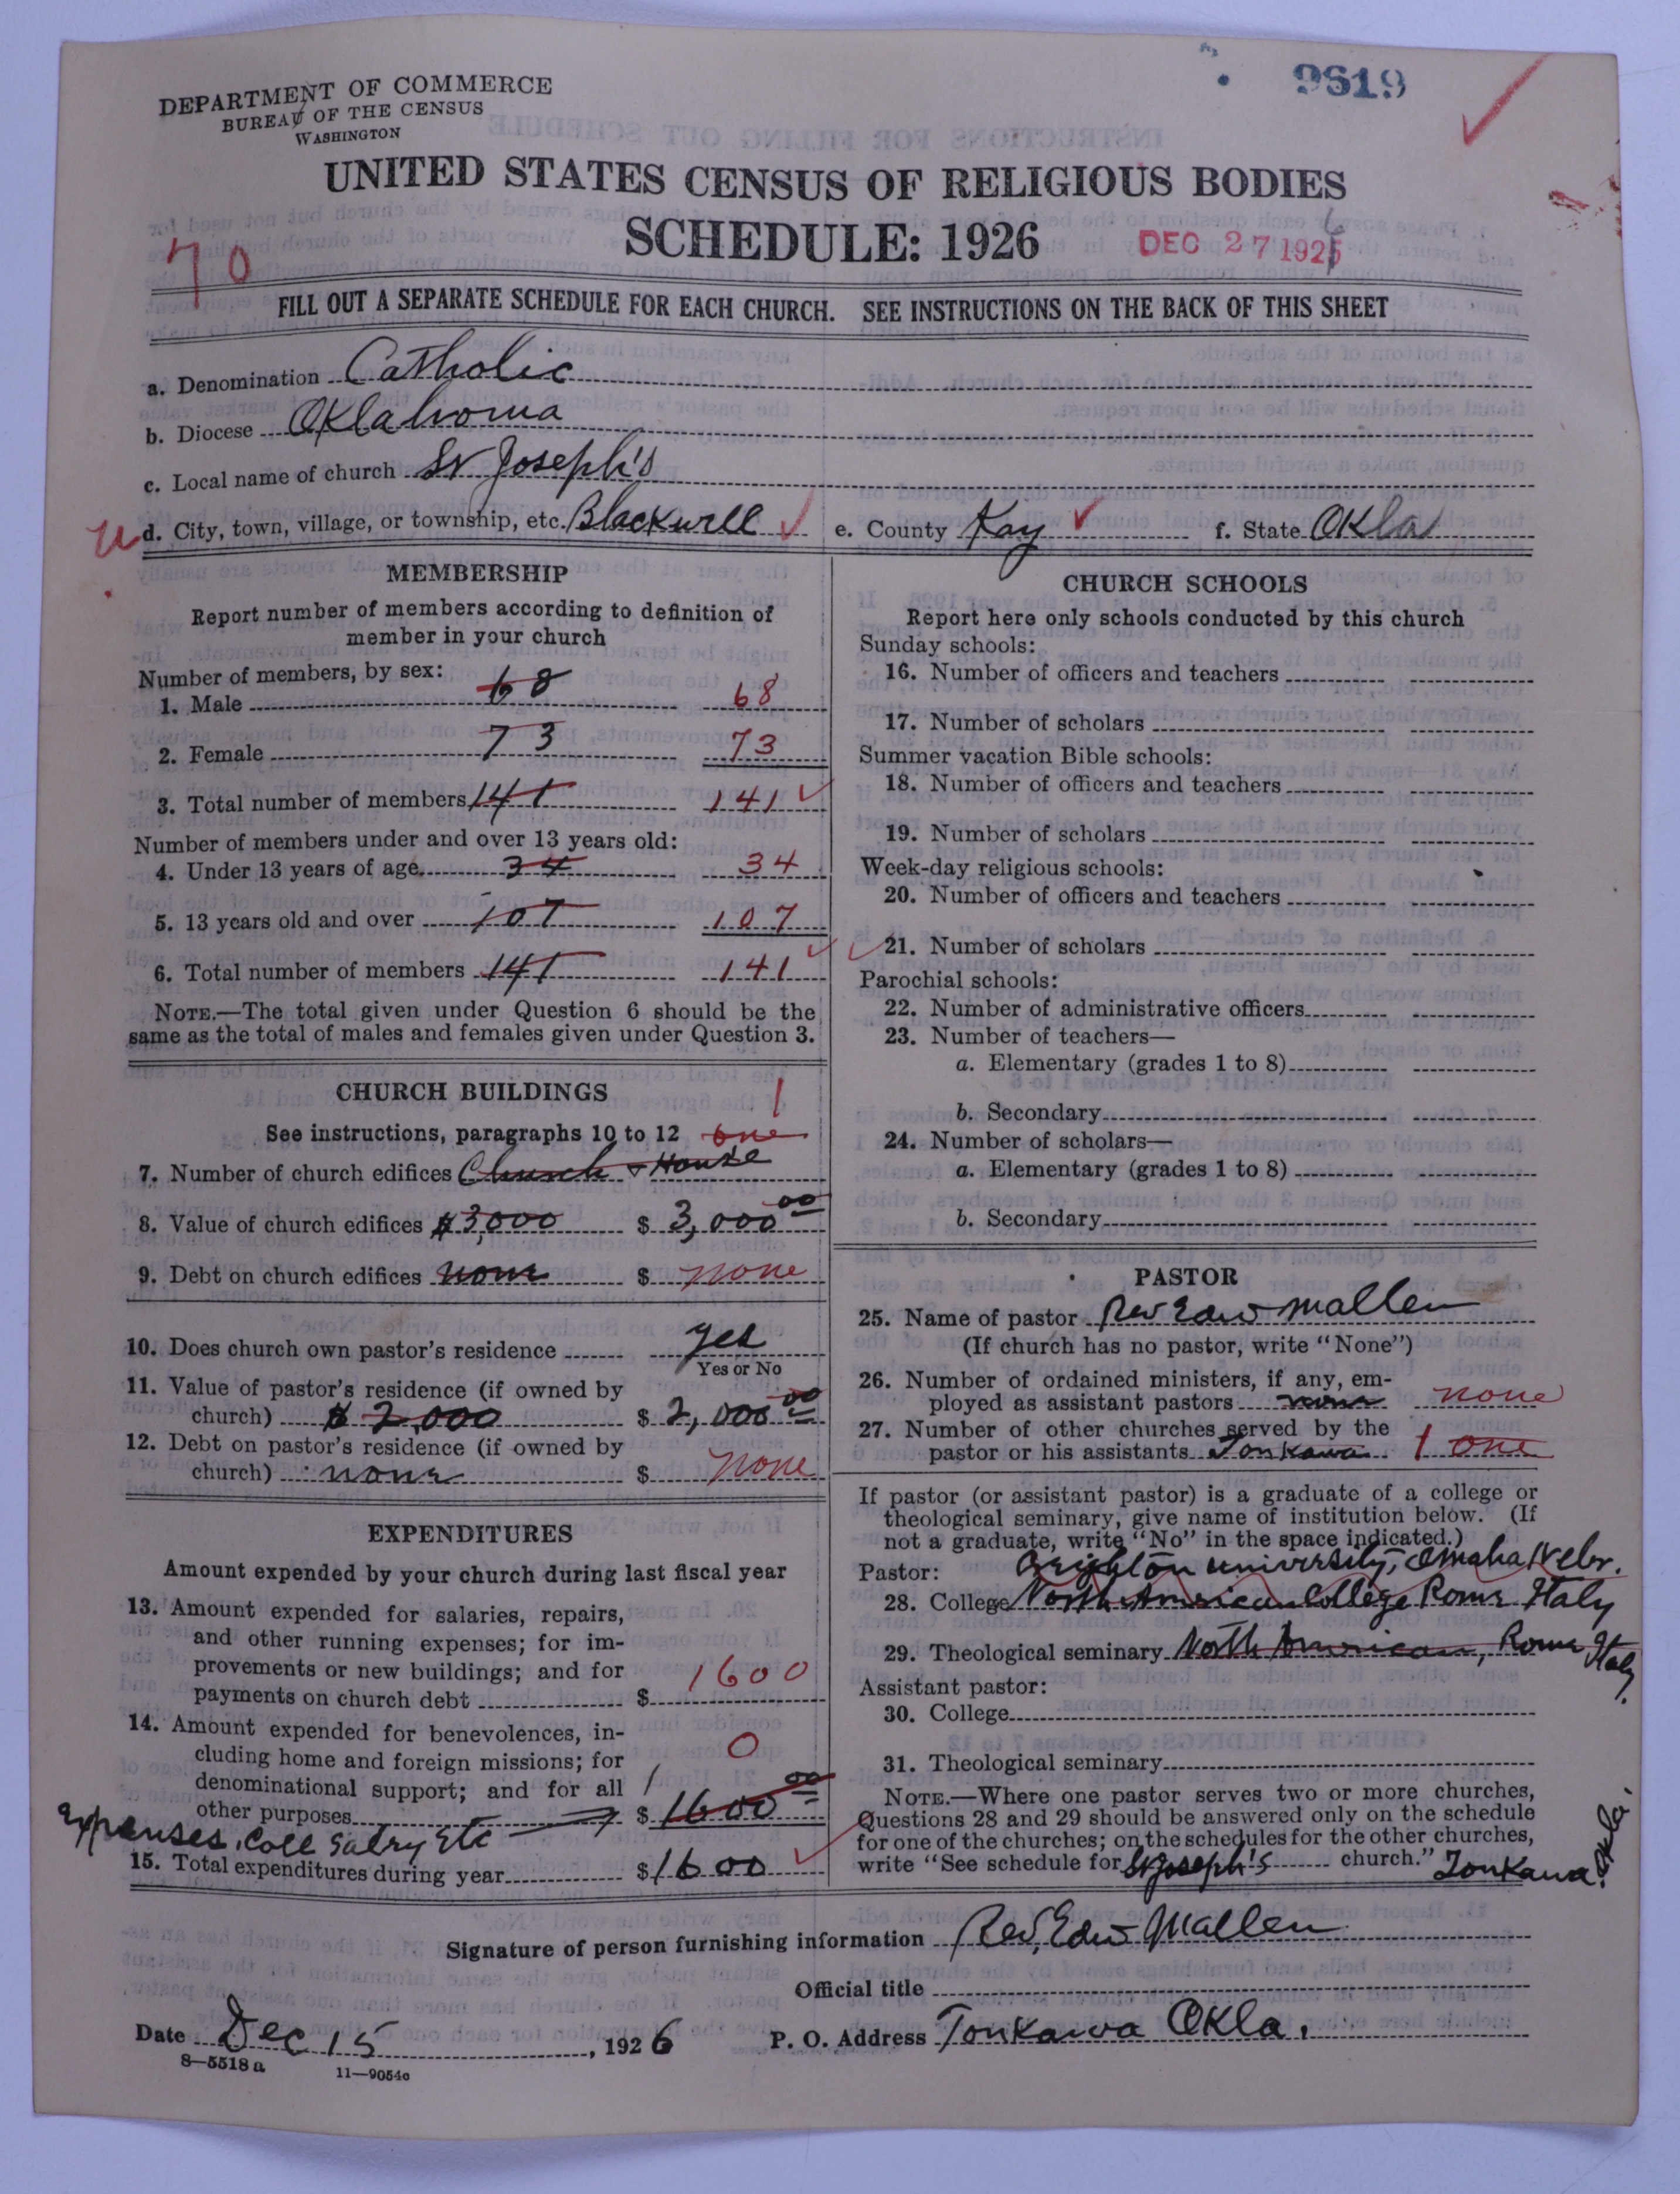 9619
DEPARTMENT OF COMMERCE
BUREAU OF THE CENSUS
WASHINGTON
UNITED STATES CENSUS OF RELIGIOUS BODIES
SCHEDULE: 1926
DEC 27 1926
70
FILL OUT A SEPARATE SCHEDULE FOR EACH CHURCH. SEE INSTRUCTIONS ON THE BACK OF THIS SHEET
a. Denomination Catholic
b. Diocese Oklahoma
c. Local name of church St Joseph's
d. City, town, village, or township, etc. Blackwell e. County Kay f. State Okla
MEMBERSHIP
Report number of members according to definition of
member in your church
Number of members, by sex:
1. Male 68 68
2. Female 73 73
3. Total number of members 141 141
Number of members under and over 13 years old:
4. Under 13 years of age 34 34
5. 13 years old and over 107 107
6. Total number of members 141 141
NOTE.—The total given under Question 6 should be the
same as the total of males and females given under Question 3.
CHURCH BUILDINGS 1
See instructions, paragraphs 10 to 12 one
7. Number of church edifices Church & House
8. Value of church edifices $3,000 $ 3,000 00
9. Debt on church edifices none $ none
10. Does church own pastor's residence yes
Yes or No
11. Value of pastor's residence (if owned by
church) $ 2,000 $ 2,000 00
12. Debt on pastor's residence (if owned by
church) none $ none
EXPENDITURES
Amount expended by your church during last fiscal year
13. Amount expended for salaries, repairs,
and other running expenses; for im-
provements or new buildings; and for
payments on church debt $ 1600
14. Amount expended for benevolences, in-
cluding home and foreign missions; for 0
denominational support; and for all
other purposes $ 1600 00
Expenses. Coll Salry Etc
15. Total expenditures during year $ 1600
CHURCH SCHOOLS
Report here only schools conducted by this church
Sunday schools:
16. Number of officers and teachers
17. Number of scholars
Summer vacation Bible schools:
18. Number of officers and teachers
19. Number of scholars
Week-day religious schools:
20. Number of officers and teachers
21. Number of scholars
Parochial schools:
22. Number of administrative officers
23. Number of teachers—
a. Elementary (grades 1 to 8)
b. Secondary
24. Number of scholars—
a. Elementary (grades 1 to 8)
b. Secondary
PASTOR
25. Name of pastor Rev Edw Mallen
(If church has no pastor, write "None")
26. Number of ordained ministers, if any, em-
ployed as assistant pastors none none
27. Number of other churches served by the
pastor or his assistants Tonkawa 1 one
If pastor (or assistant pastor) is a graduate of a college or
theological seminary, give name of institution below. (If
not a graduate, write "No" in the space indicated.)
Pastor: Creighton University, Omaha Nebr.
28. College North American College Rome Italy
29. Theological seminary North American, Rome Italy
Assistant pastor:
30. College
31. Theological seminary
NOTE.—Where one pastor serves two or more churches,
Questions 28 and 29 should be answered only on the schedule
for one of the churches; on the schedules for the other churches,
write "See schedule for St Joseph's church." Tonkawa Okla.
Signature of person furnishing information Rev. Edw Mallen
Official title
Date Dec 15, 1926 P. O. Address Tonkawa Okla.
8—5518 a 11—9054c